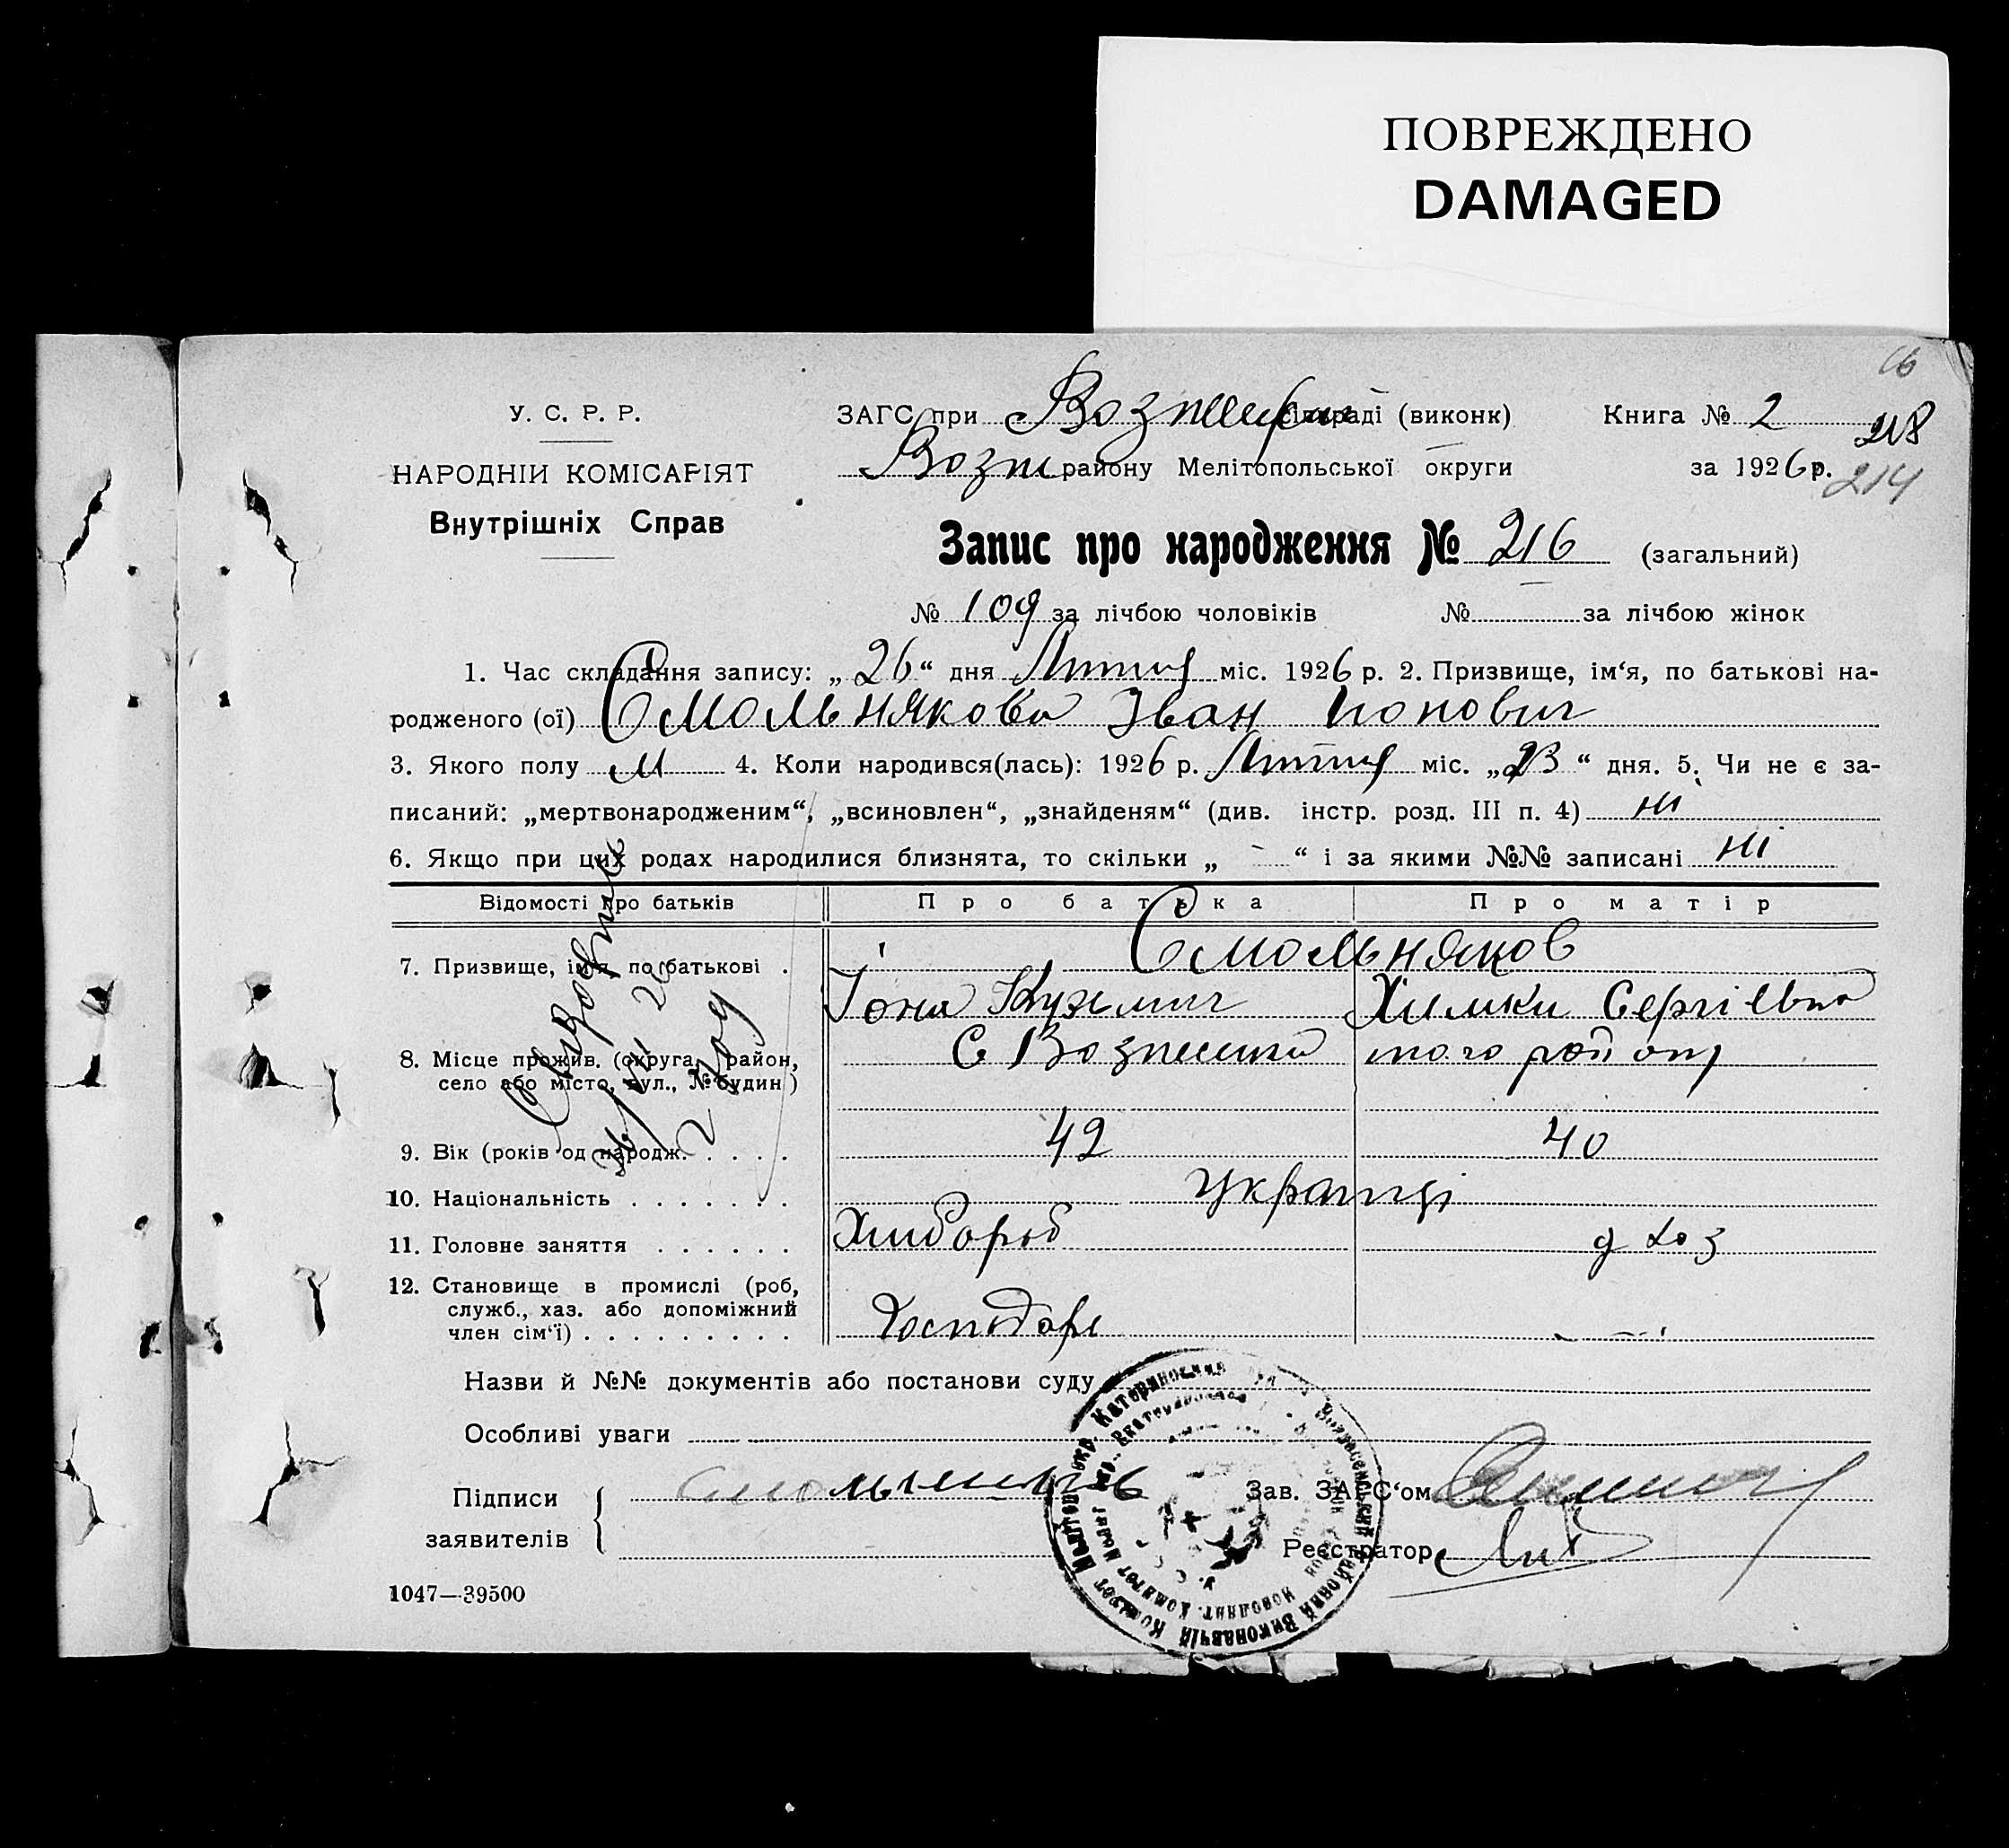 ПОВРЕЖДЕНО
DAMAGED
16
У. С. Р. Р.
НАРОДНІЙ КОМІСАРІЯТ
Внутрішніх Справ
ЗАГС при сільраді (виконк) Книга № 2
218
Возн району Мелітопольської округи за 1926 р.
214
Запис про народження № 216 (загальний)
№ 109 за лічбою чоловіків № за лічбою жінок
1. Час складання запису: „26“ дня міс. 1926 р. 2. Призвище, ім‘я, по батькові на-
родженого (ої) Смольнякова Іван Іонович
3. Якого полу М 4. Коли народився(лась): 1926 р. міс. „23“ дня. 5. Чи не є за-
писаний: „мертвонародженим“, „всиновлен“, „знайденям“ (див. інстр. розд. III п. 4) ні
6. Якщо при цих родах народилися близнята, то скільки „ - “ і за якими №№ записані ні
Відомості про батьків Про батька Про матір
7. Призвище, ім‘я, по батькові . Смольняков
Іона Кузьмич Химки Сергіевна
8. Місце прожив. (округа, район,
село або місто, вул., № будин.)
С Вознесенка того району
9. Вік (років од народж. . . . . 42 40
10. Національність . . . . . . . Українці
11. Головне заняття . . . . . . Хлібороб д хоз
12. Становище в промислі (роб,
служб., хаз. або допоміжний
член сім‘ї) . . . . . . . . . Господарь
Назви й №№ документів або постанови суду
Особливі уваги
Підписи
заявителів
Зав. ЗАГС‘ом
Реєстратор
1047—39500